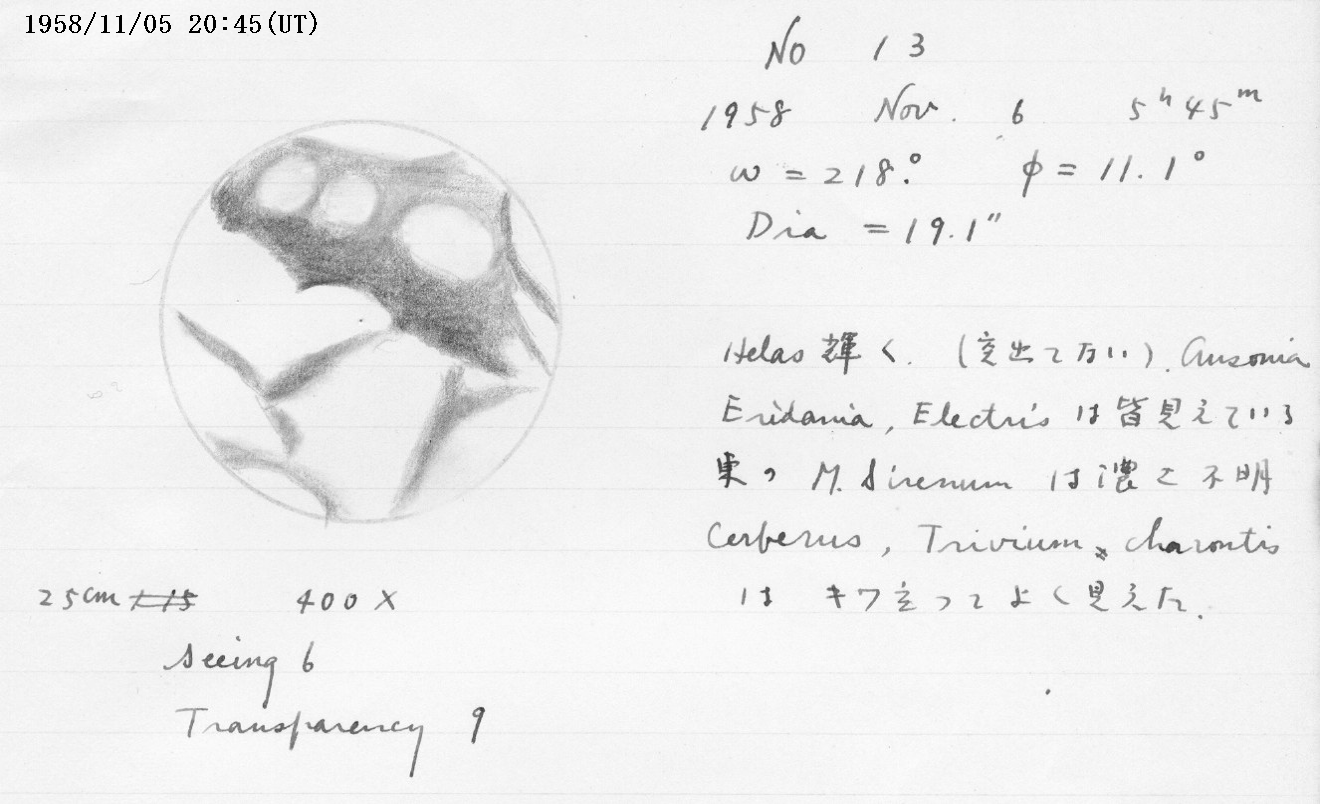 1958/11/05 20:45(UT)
No 13
1958 Nov. 6 5h 45m
ω = 218.° φ = 11.1°
Dia = 19.1"
Helas 輝く. (突出て万い). Ausonia
Eridania, Electris は皆見えている
東の M. Sirenum は濃く不明
Cerberus, Trivium charontis
は キワ立ってよく見えた.
25cm 400X
Seeing 6
Transparency 9